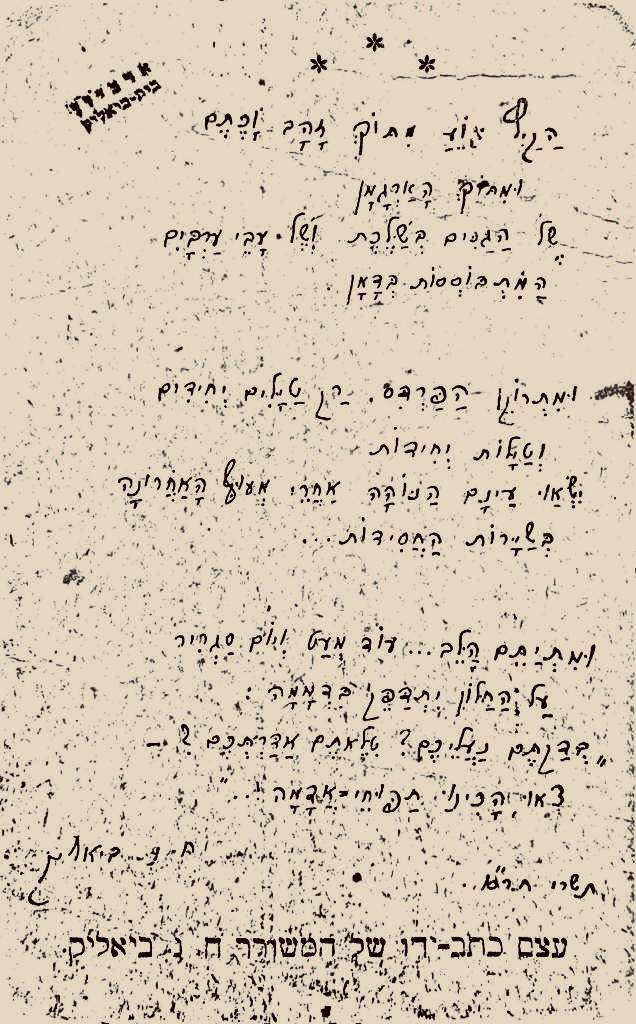 * * *
ארכיון
בית-ביאליק
הַקַּיִץ גֹּוֵעַ מִתּוֹךְ זָהָב וָכֶתֶם
וּמִתּוֹךְ הָאַרְגָּמָן
שֶׁל הַגַּנִּים בְּשַׁלֶּכֶת וְשֶׁל עָבֵי עַרְבָּיִם
הַמִּתְבּוֹסְסוֹת בְּדָמָן
וּמִתְרוֹקֵן הַפַּרְדֵּס. רַק טַיָּלִים יְחִידִים
וְטַיָּלוֹת יְחִידוֹת
יִשְּׂאוּ עֵינָם הַנּוֹהָה אַחֲרֵי מְעוּף הָאַחֲרוֹנָה
בְּשַׁיָּרוֹת הַחֲסִידוֹת...
וּמִתְיַתֵּם הַלֵּב... עוֹד מְעַט וְיוֹם סַגְרִיר
עַל הַחַלּוֹן יִתְדַּפֵּק בִּדְמָמָה:
„בְּדַקְתֶּם נַעֲלֵיכֶם? טִלֵּאתֶם אַדַּרְתְּכֶם? –
צְאוּ הָכִינוּ תַפּוּחֵי-אֲדָמָה..."
ח. נ. ביאליק
תשרי
עצם כתב-ידו של המשורר ח. נ. ביאליק